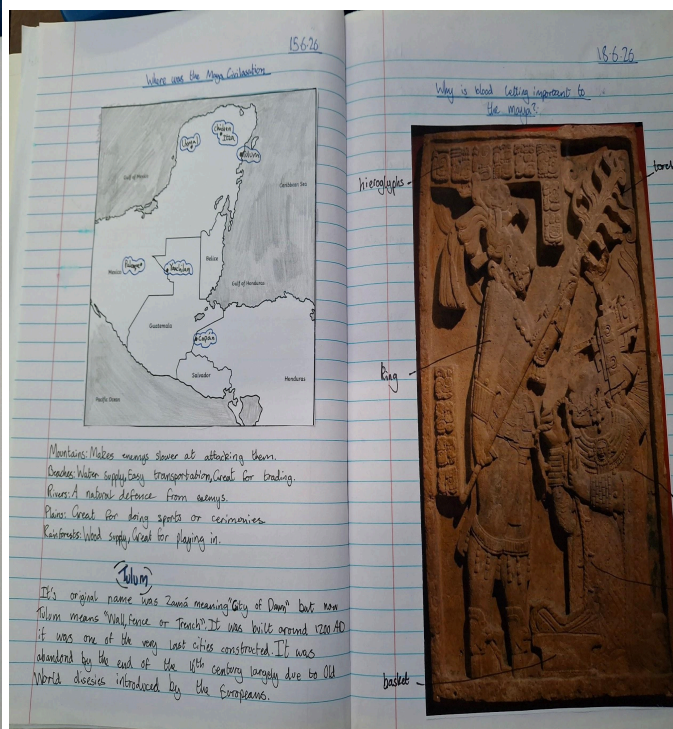 15.6.26
Where was the Maya Civilisation
Gulf of Mexico
Uxmal
Chichen
Itza
Tulum
Caribbean Sea
Mexico
Palenque
Yaxchilan
Belize
Gulf of Honduras
Guatemala
Copain
Salvador
Honduras
Pacific Ocean
Mountains: Makes enemys slower at attacking them.
Beaches: Water supply, Easy transportation, Great for trading.
Rivers: A natural defence from enemys.
Plains: Great for doing sports or cerimonies
Rainforests: Wood supply, Great for playing in.
Tulum
It's original name was Zamá meaning "City of Dawn" but now
Tulum means "Wall, Fence or Trench". It was built around 1200 AD
it was one of the very last cities constructed. It was
abandond by the end of the 16th century largely due to Old
World disesies introduced by the Europeans.
18.6.26
Why is blood letting important to
the maya?
hieroglyphs
torch
King
basket